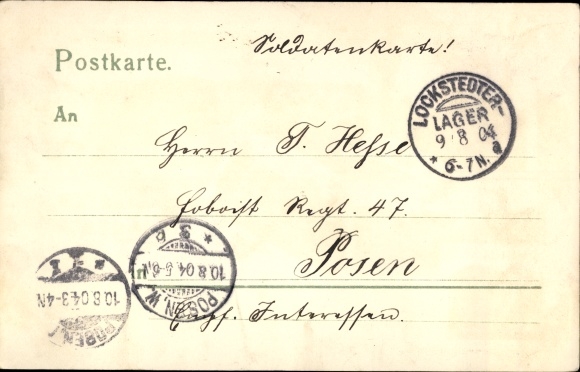 Postkarte.
Soldatenkarte!
An
LOCKSTEDTER-
LAGER
9 8 04
* 6-7 N. a
Herrn T. Hesse
Hoboist Regt. 47.
Posen
Empf. Interessen.
10.8.04.5-6.
POSEN. W.
10.8.04.3-4N
POSEN